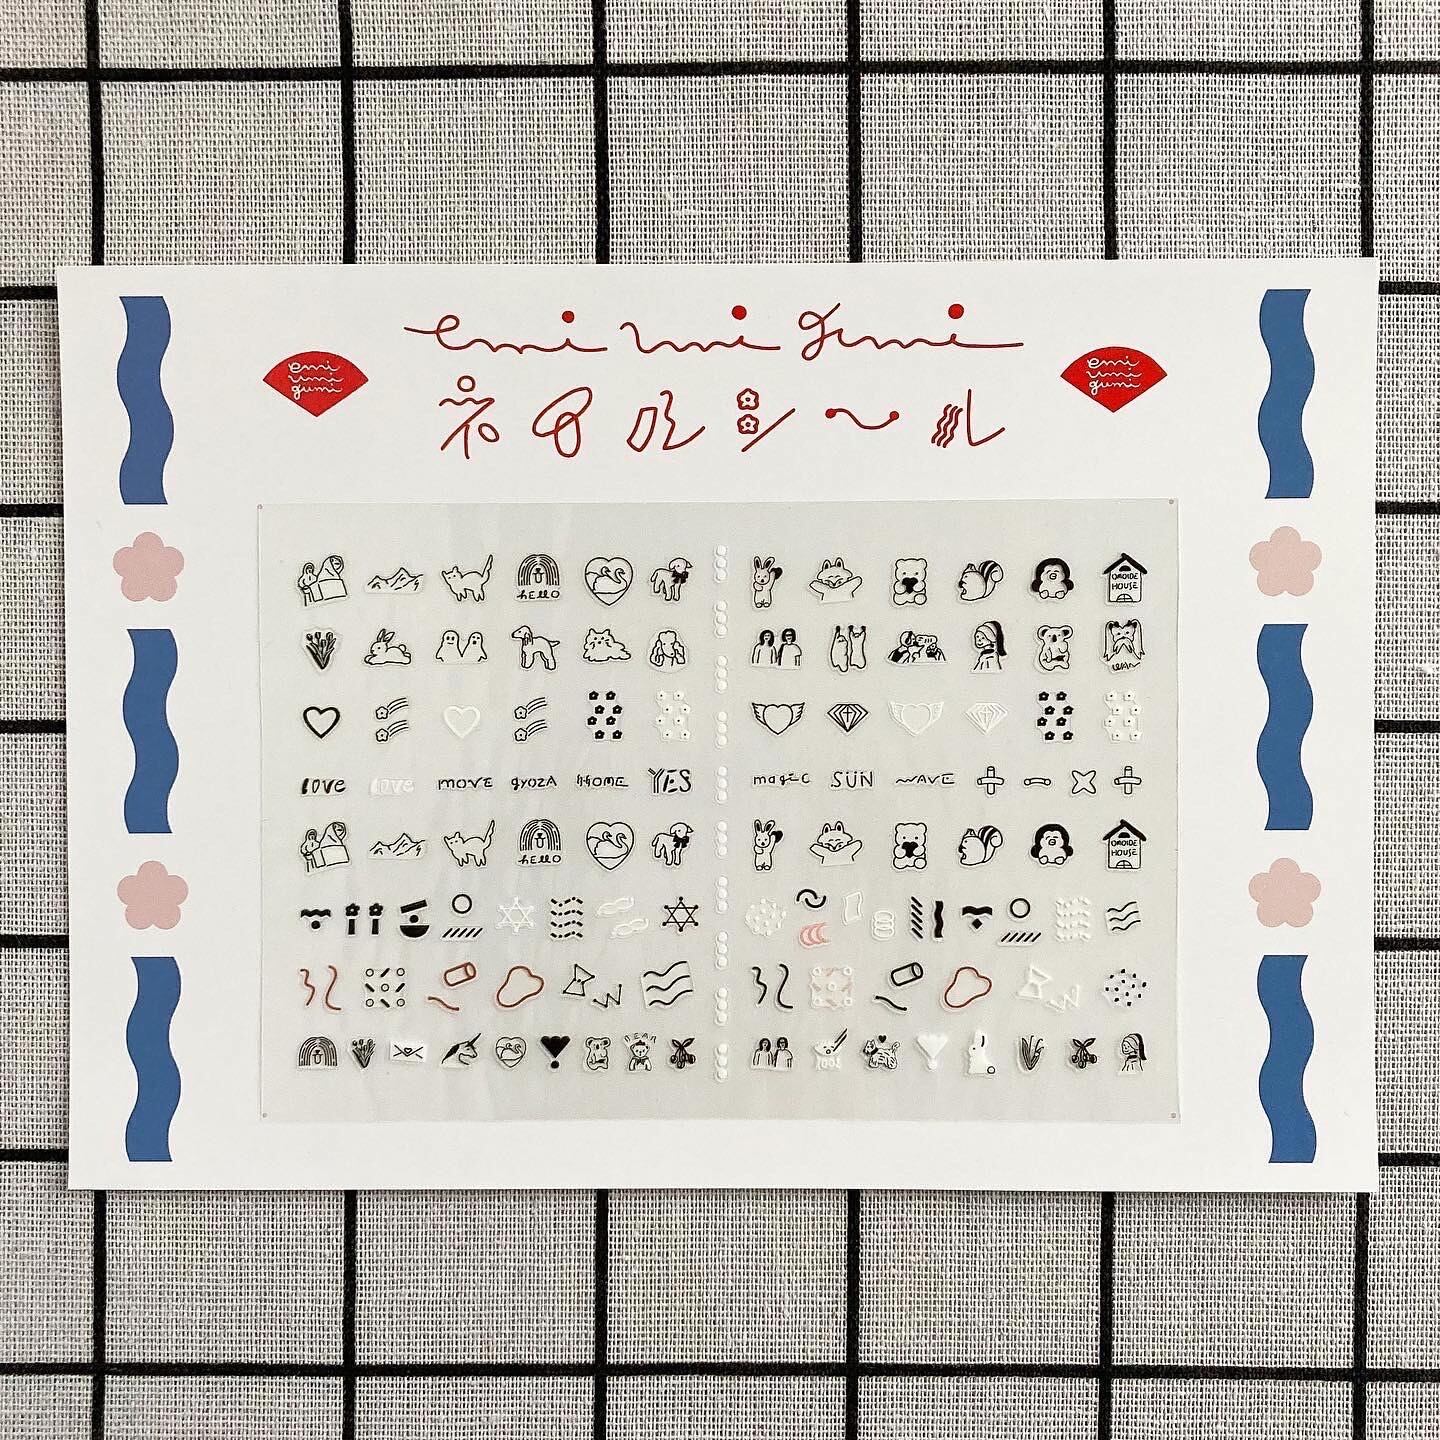 emi umi gumi
emi
umi
gumi
emi
umi
gumi
ネイルシール
hello
OMOIDE
HOUSE
love love MOVE gyozA HOME YES magic SUN WAVE
hello
OMOIDE
HOUSE